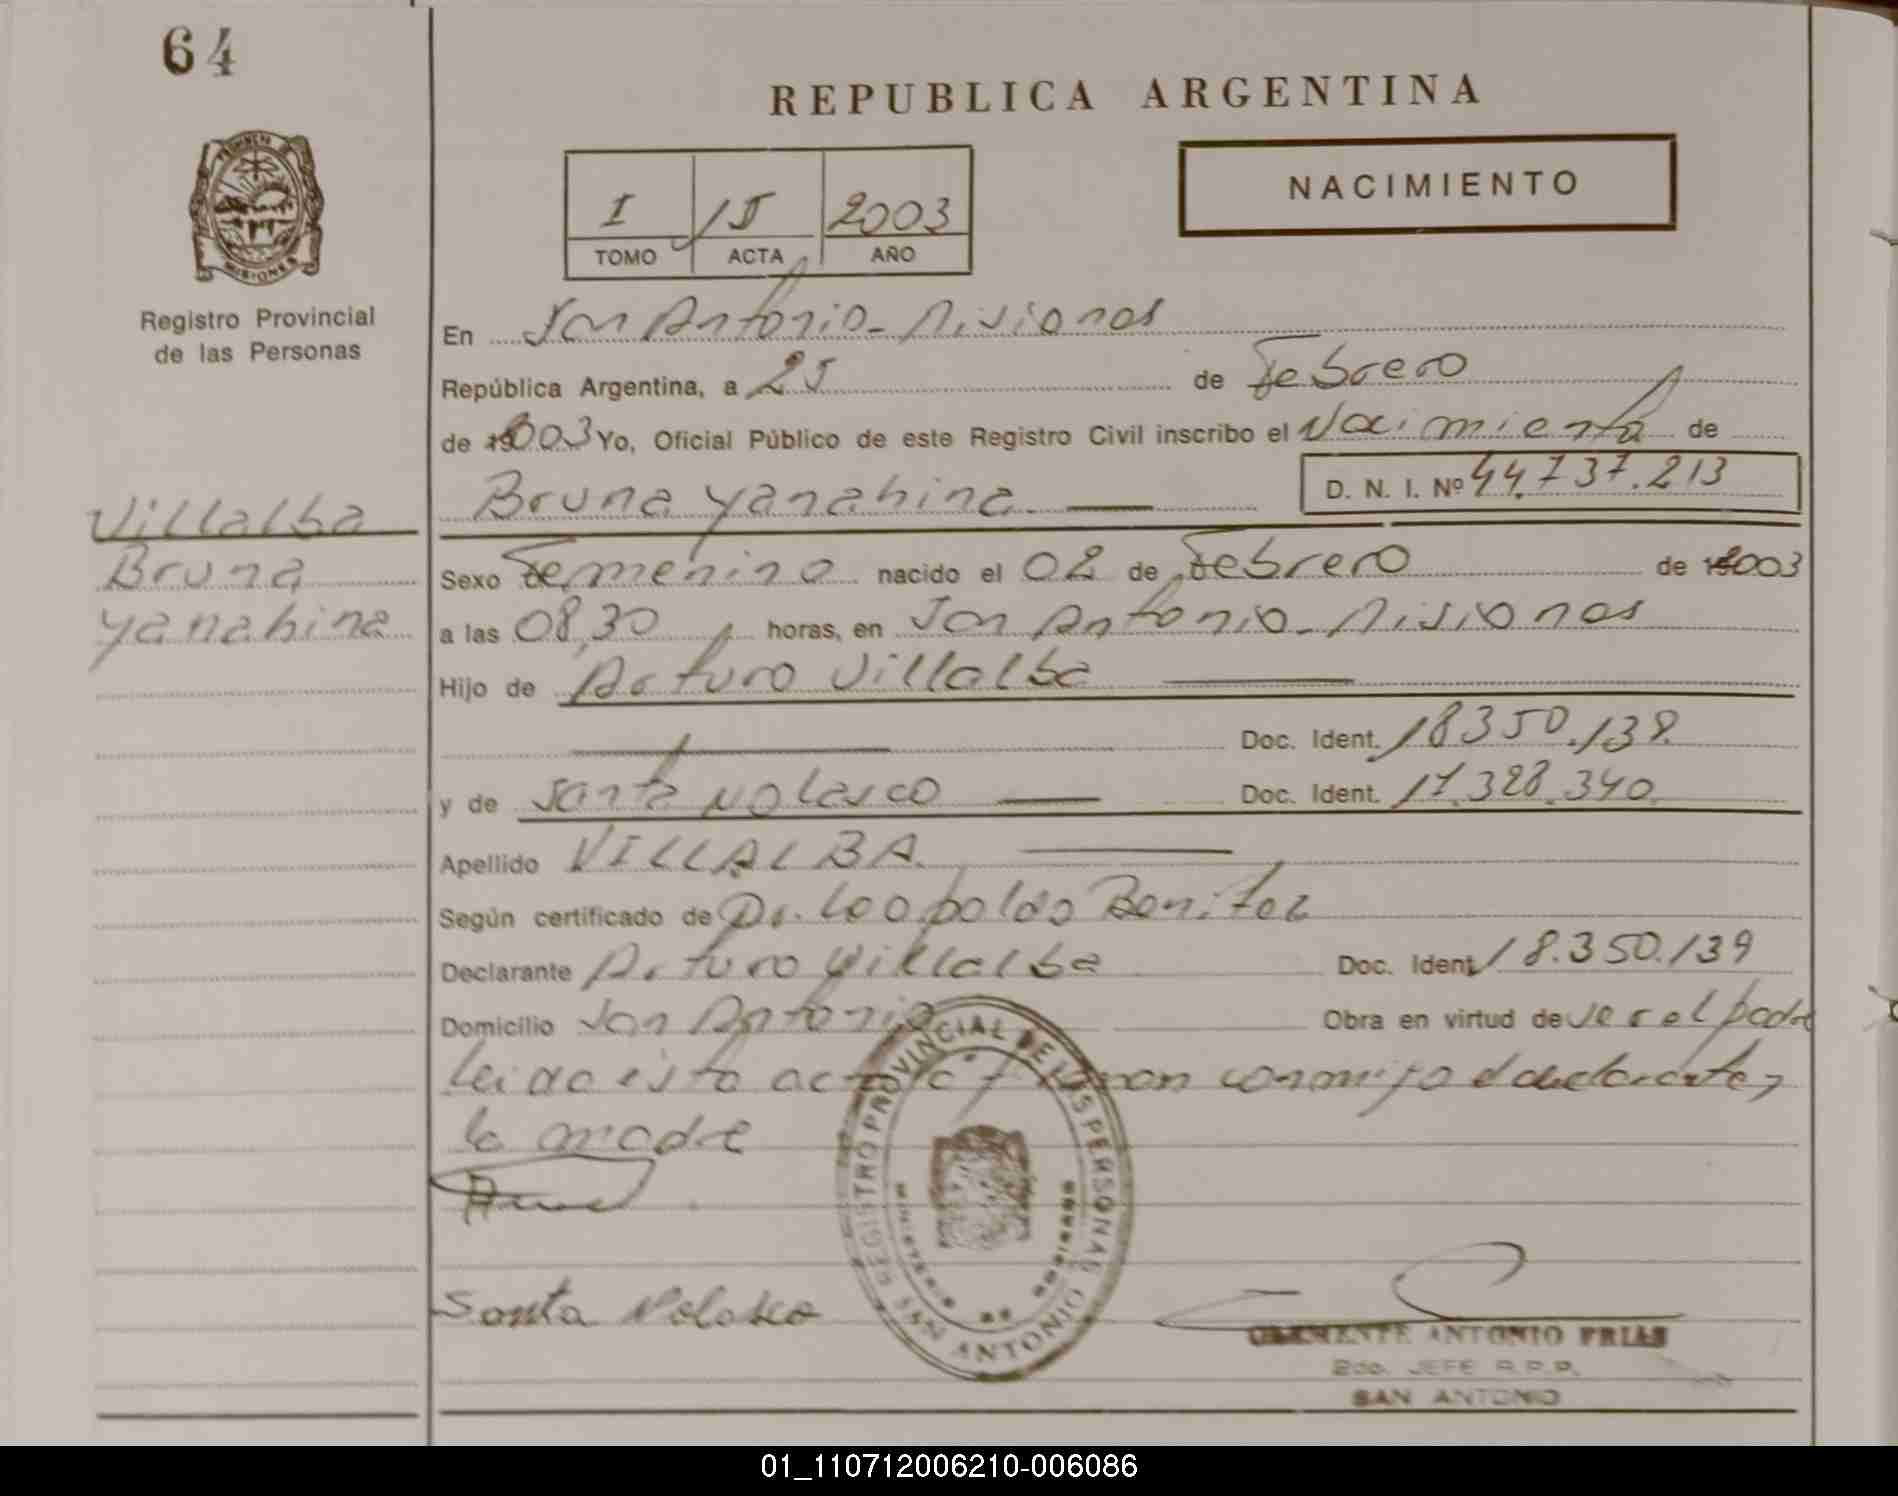 64
REPUBLICA ARGENTINA
NACIMIENTO
I 15 2003
TOMO ACTA AÑO
PROVINCIA DE
MISIONES
Registro Provincial
de las Personas
En San Antonio - Misiones
República Argentina, a 25 de Febrero
de 2003 Yo, Oficial Público de este Registro Civil inscribo el Nacimiento de
Bruna Yanahina D. N. I. Nº 44.737.213
Villalba
Bruna
Yanahina
Sexo Femenino nacido el 02 de Febrero de 2003
a las 08,30 horas, en San Antonio - Misiones
Hijo de Arturo Villalba
Doc. Ident. 18350.139
y de Santa Nolasco Doc. Ident. 17.328.340
Apellido VILLALBA
Según certificado de Dr. Leopoldo Benitez
Declarante Arturo Villalba Doc. Ident. 18.350.139
Domicilio San Antonio Obra en virtud de ser el padre
Leida esta acta firman conmigo el declarante y
la madre
REGISTRO PROVINCIAL DE LAS PERSONAS
MINISTERIO DE GOBIERNO
SAN ANTONIO
Santa Nolasco
CLEMENTE ANTONIO FRIAS
2do. JEFE R.P.P.
SAN ANTONIO
01_110712006210-006086